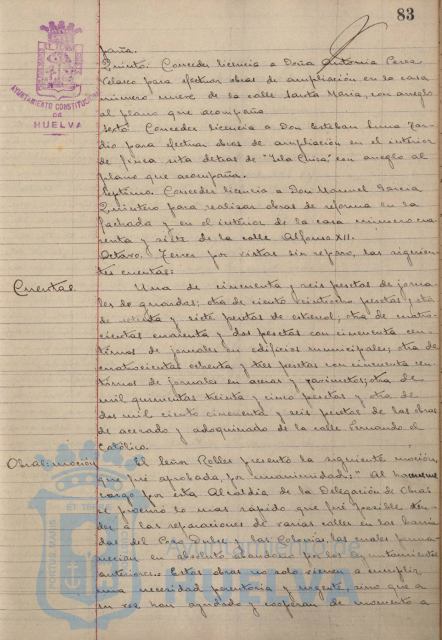 83
AYUNTAMIENTO CONSTITUCIONAL
HUELVA
paña.
Quinto: Conceder licencia a Doña Antonia Cerea
Velasco para efectuar obras de ampliación en la casa
número nueve de la calle Santa María, con arreglo
al plano que acompaña
Sexto: Conceder licencia a Don Esteban
para efectuar obras de ampliación en el interior
de finca sita detras de "Isla Chica" con arreglo al
plano que acompaña.
Septimo. Conceder licencia a Don Manuel Garcia
Quintero para realizar obras de reforma en la
fachada y en el interior de la casa número cua-
renta y siete de la calle Alfonso XII.
Octavo. Tener por vistas sin reparo, las siguien-
tes cuentas:
Cuentas
Una de cincuenta y seis pesetas de jorna-
les de guardas; otra de ciento veinticinco pesetas; otra
de setenta y siete pesetas de esterool; otra de cuatro-
cientas cuarenta y dos pesetas con cincuenta cen-
timos de jornales en edificios municipales; otra de
cuatrocientas ochenta y tres pesetas con cincuenta cen-
timos de jornales en aceras y pavimetos; otra de
mil quinientas treinta y cinco pesetas y otra de
dos mil ciento cincuenta y seis pesetas de las obras
de acerado y adoquinado de la calle Fernando el
Católico.
Obras: moción
El Señor Rolles presentó la siguiente moción,
que fué aprobada, por unanimidad: "Al hacerme
cargo por esta Alcaldía de la Delegación de Obras
se procuró lo mas rapido que fué posible aten-
der a las reparaciones de varias calles en las barria-
das del Coro Dulce y las Colonias, las cuales perma-
necian en absoluto abandono por los Ayuntamientos
anteriores. Estas obras no solo vienen a cumplir
una necesidad perentoria y urgente, sino que a
su vez han ayudado y cooperan de momento a
PORTUS MARIS
ET TER
HUELVA